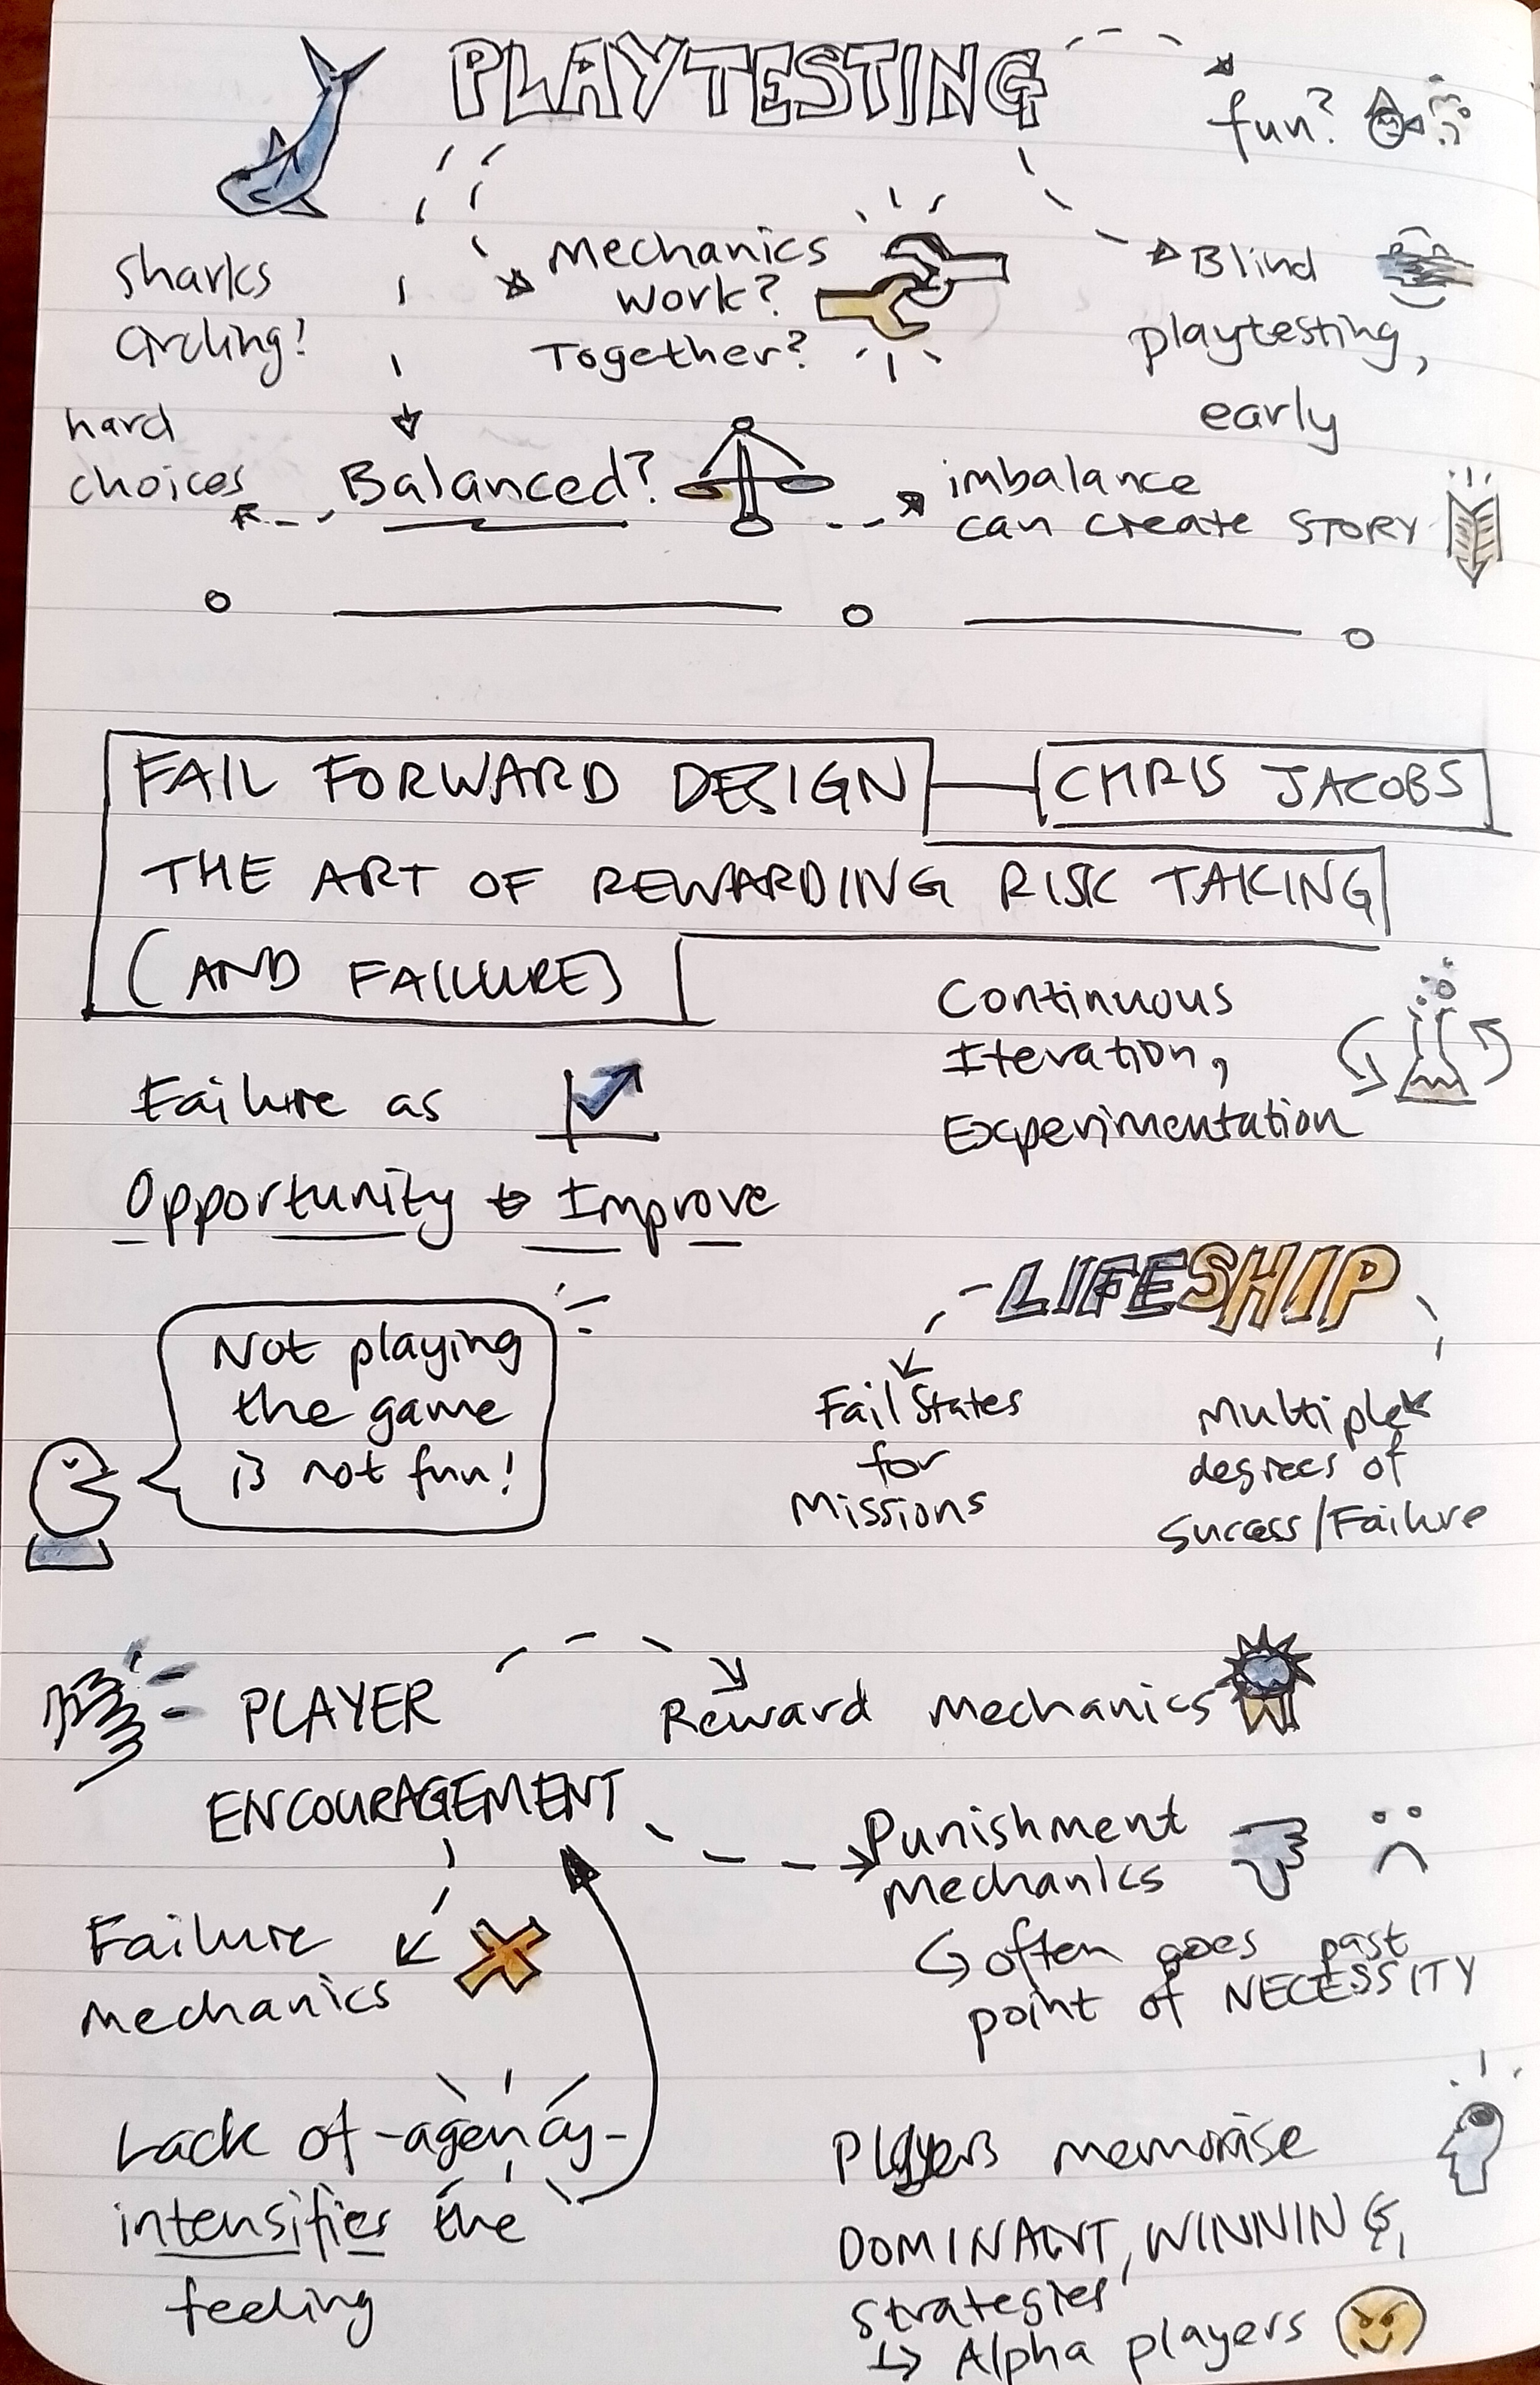 PLAYTESTING
fun?
sharks
circling!
Mechanics
work?
Together?
Blind
playtesting,
early
hard
choices
Balanced?
imbalance
can create STORY
FAIL FORWARD DESIGN
CHRIS JACOBS
THE ART OF REWARDING RISK TAKING
(AND FAILURE)
Continuous
Iteration,
Experimentation
Failure as
Opportunity to Improve
LIFESHIP
Not playing
the game
is not fun!
Fail States
for
Missions
Multiple
degrees of
Success/Failure
PLAYER
ENCOURAGEMENT
Reward Mechanics
Punishment
Mechanics
often goes past
point of NECESSITY
Failure
mechanics
Lack of -agency-
intensifies the
feeling
Players memorise
DOMINANT, WINNING,
strategies
Alpha players